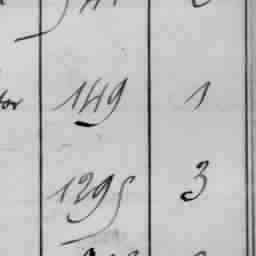 tor 149 1
1295 3